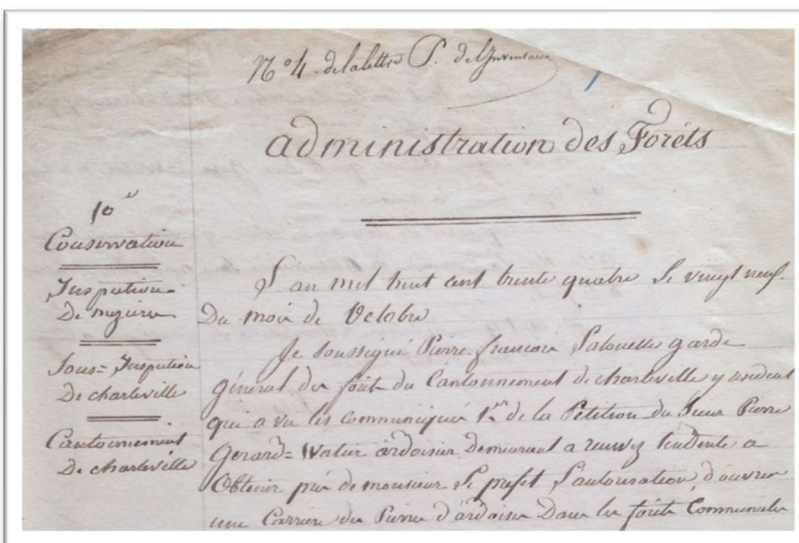 N° 4. de la lettre P. de l'Inventaire
administration des Forêts
10e
Conservation
Inspection
De mezieres
Sous= Inspection
De charleville
Cantonnement
De charleville
L'an mil huit cent trente quatre Le vingt neuf
Du mois de Octobre
Je Soussigné Pierre francois garde
géneral des forêts du Cantonnement de charleville y residant
qui a vu les communiqué 1er de la Pétition du Sieur Pierre
Gerard= ardoisier demeurant a tendente a
Obtenir près de monsieur Le prefet L'autorisation d'ouvrir
une Carriere de Pierre d'ardoise Dans les forêts Communales